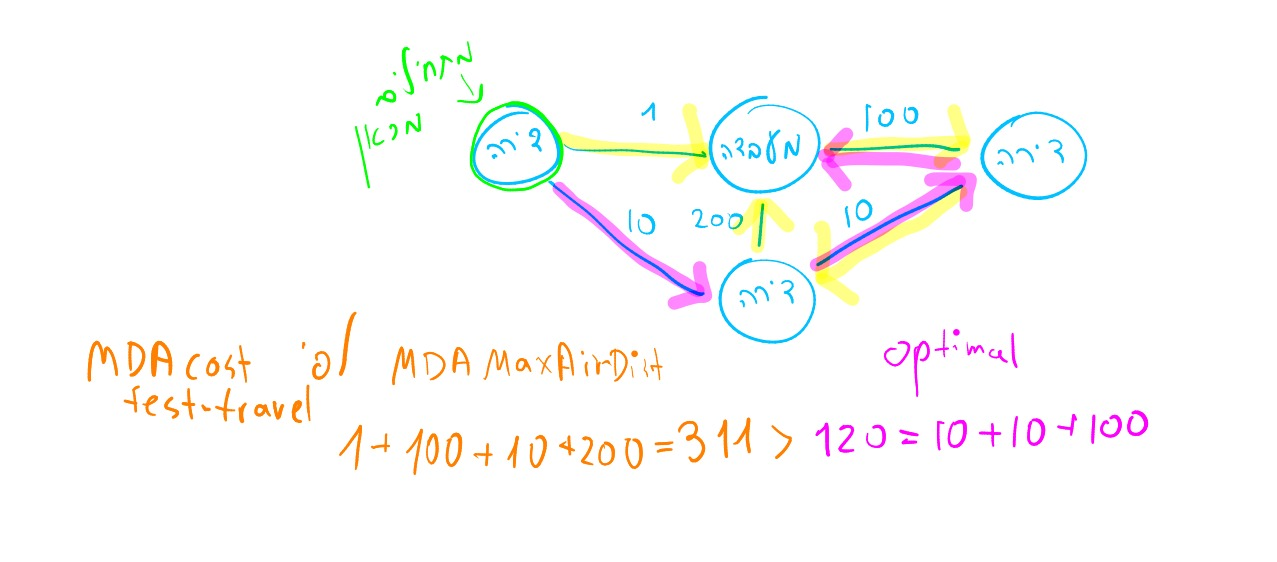 מתחילים
מכאן
דירה
1
מעבדה
100
דירה
10
200
10
דירה
MDA cost לפי MDA MaxAirDist
test-travel
optimal
1 + 100 + 10 + 200 = 311 > 120 = 10 + 10 + 100